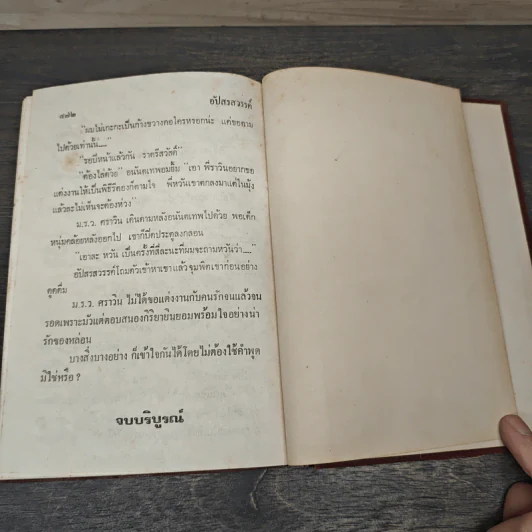 ๔๑๒
อัปสรสวรรค์
"ผมไม่เกะกะเป็นก้างขวางคอใครหรอกน่ะ แค่ขอตาม
ไปด้วยเท่านั้น...."
"รอบีหน้าแล้วกัน ราตรีสวัสดิ์"
"ต้องไล่ด้วย" อนันตเทพยมยิ้ม "เอา พี่ราวินอยากขอ
แต่งงานให้เป็นพิธีรีตองก็ตามใจ พี่หวันเขาตกลงมาแต่ในมุ้ง
แล้วละไม่เห็นจะต้องห่วง"
ม.ร.ว. ศราวิน เดินตามหลังอนันตเทพไปด้วย พอเด็ก
หนุ่มคล้อยหลังออกไป เขาก็ปิดประตูลงกลอน
"เอาละ หวัน เป็นครั้งที่สี่ละนะที่ผมจะถามหวันว่า...."
อัปสรสวรรค์โถมตัวเข้าหาเขาแล้วจุมพิตเขาก่อนอย่าง
ดูดดื่ม
ม.ร.ว. ศราวิน ไม่ได้ขอแต่งงานกับคนรักจนแล้วจน
รอดเพราะมัวแต่ตอบสนองกิริยายินยอมพร้อมใจอย่างน่า
รักของหล่อน
บางสิ่งบางอย่าง ก็เข้าใจกันได้โดยไม่ต้องใช้คำพูด
มิใช่หรือ ?
จบบริบูรณ์